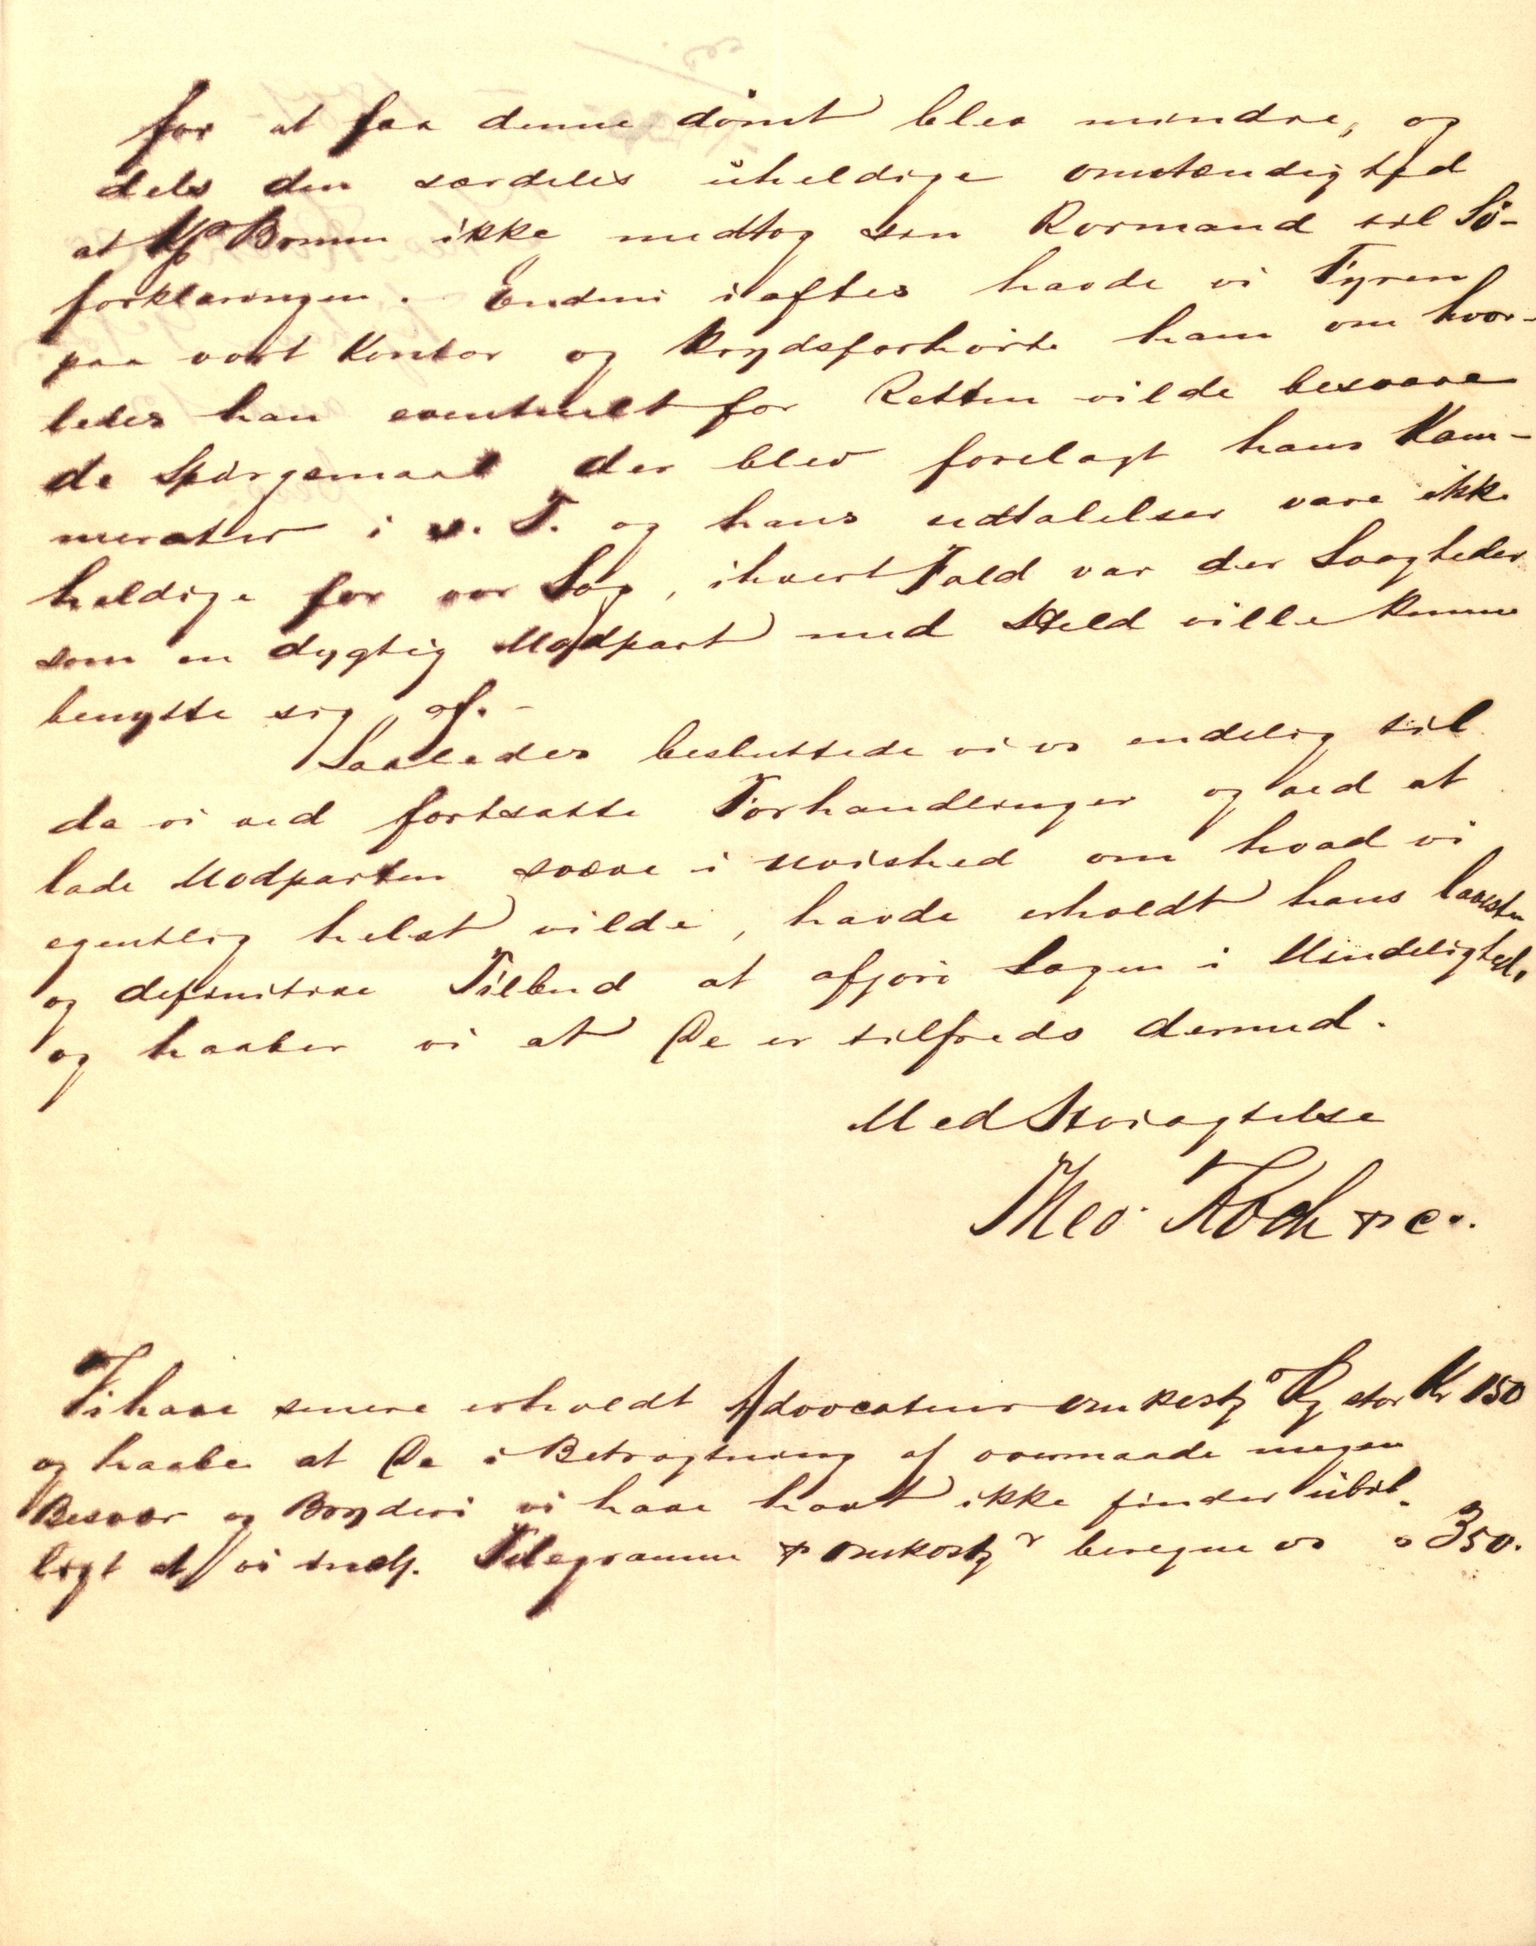 for at faa denne dømt blev mindre, og
dels den særdeles uheldige omstændighed
at Kp Bomm ikke medtog sin Rormand til Sø-
forklaringen. Endnu iaftes havde vi Fyren
paa vort Kontor og krydsforhørte ham om hvor-
ledes han eventuelt for Retten vilde besvare
de Spørgsmaal der blev forelagt hans Kam-
merater i s. T. og hans udtalelser vare ikke
heldige for vor Sag, ihvert Fald var der Svagheder
som en dygtig Modpart med Held ville kunne
benytte sig af. -
Saaledes besluttede vi os endelig til
da vi ved fortsatte Forhandlinger og ved at
lade Modparten svæve i uvished om hvad vi
egentlig helst vilde, havde erholdt hans laveste
og definitive Tilbud at afgjøre Sagen i Mindelighed,
og haaber vi at De er tilfreds dermed.
Med Høiagtelse
Theo. Koch & Co.
Vi have senere erholdt Advocatens omkostg Rg stor Kr 150
og haabe at De i Betragtning af overmaade megen
Besvær og Bryderi vi have havt ikke finder ubil-
ligt at vi incl. Telegramme & omkostgr beregne os " 350.